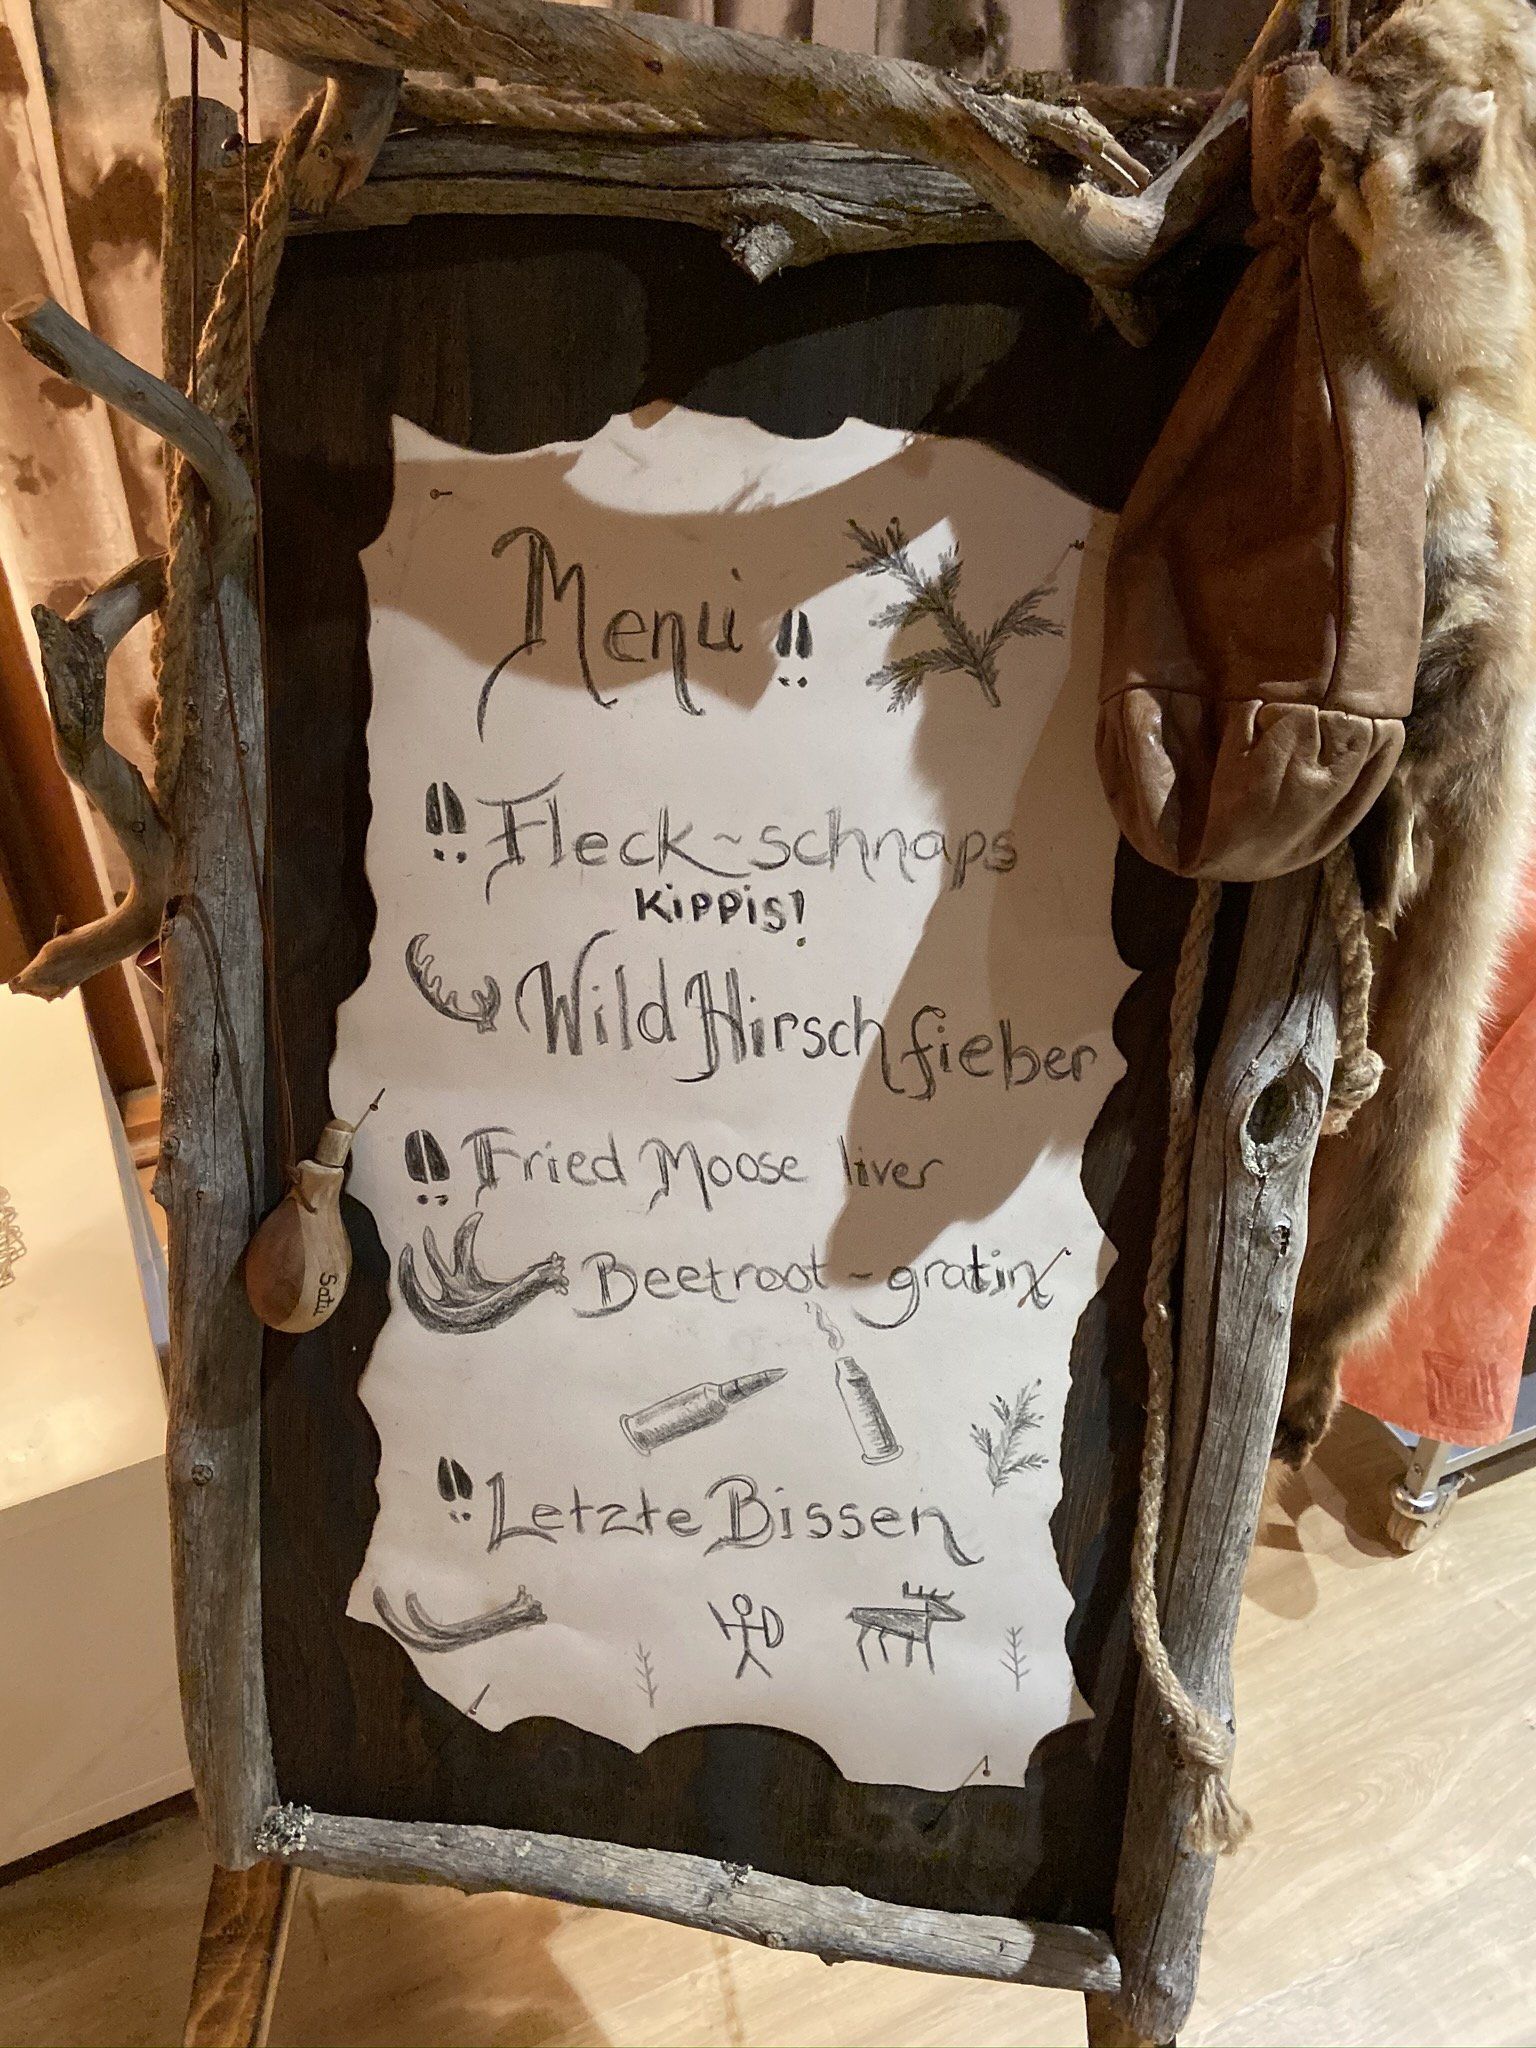 Menü
Fleck~schnaps
Kippis!
Wild Hirschfieber
Fried Moose liver
Beetroot-gratin
Letzte Bissen
Satu